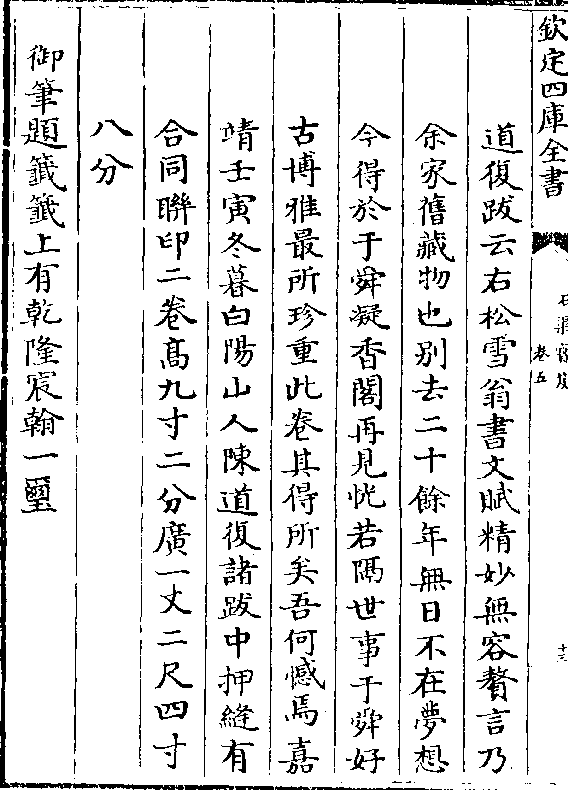 欽定四庫全書
卷五
道復跋云右松雪翁書文賦精妙無容贅言乃
余家舊藏物也別去二十餘年無日不在夢想
今得於于舜凝香閣再見恍若隔世事于舜好
古博雅最所珍重此卷其得所矣吾何憾焉嘉
靖壬寅冬暮白陽山人陳道復諸跋中押縫有
合同聯印二卷髙九寸二分廣一丈二尺四寸
八分
御筆題籖籖上有乾隆宸翰一璽